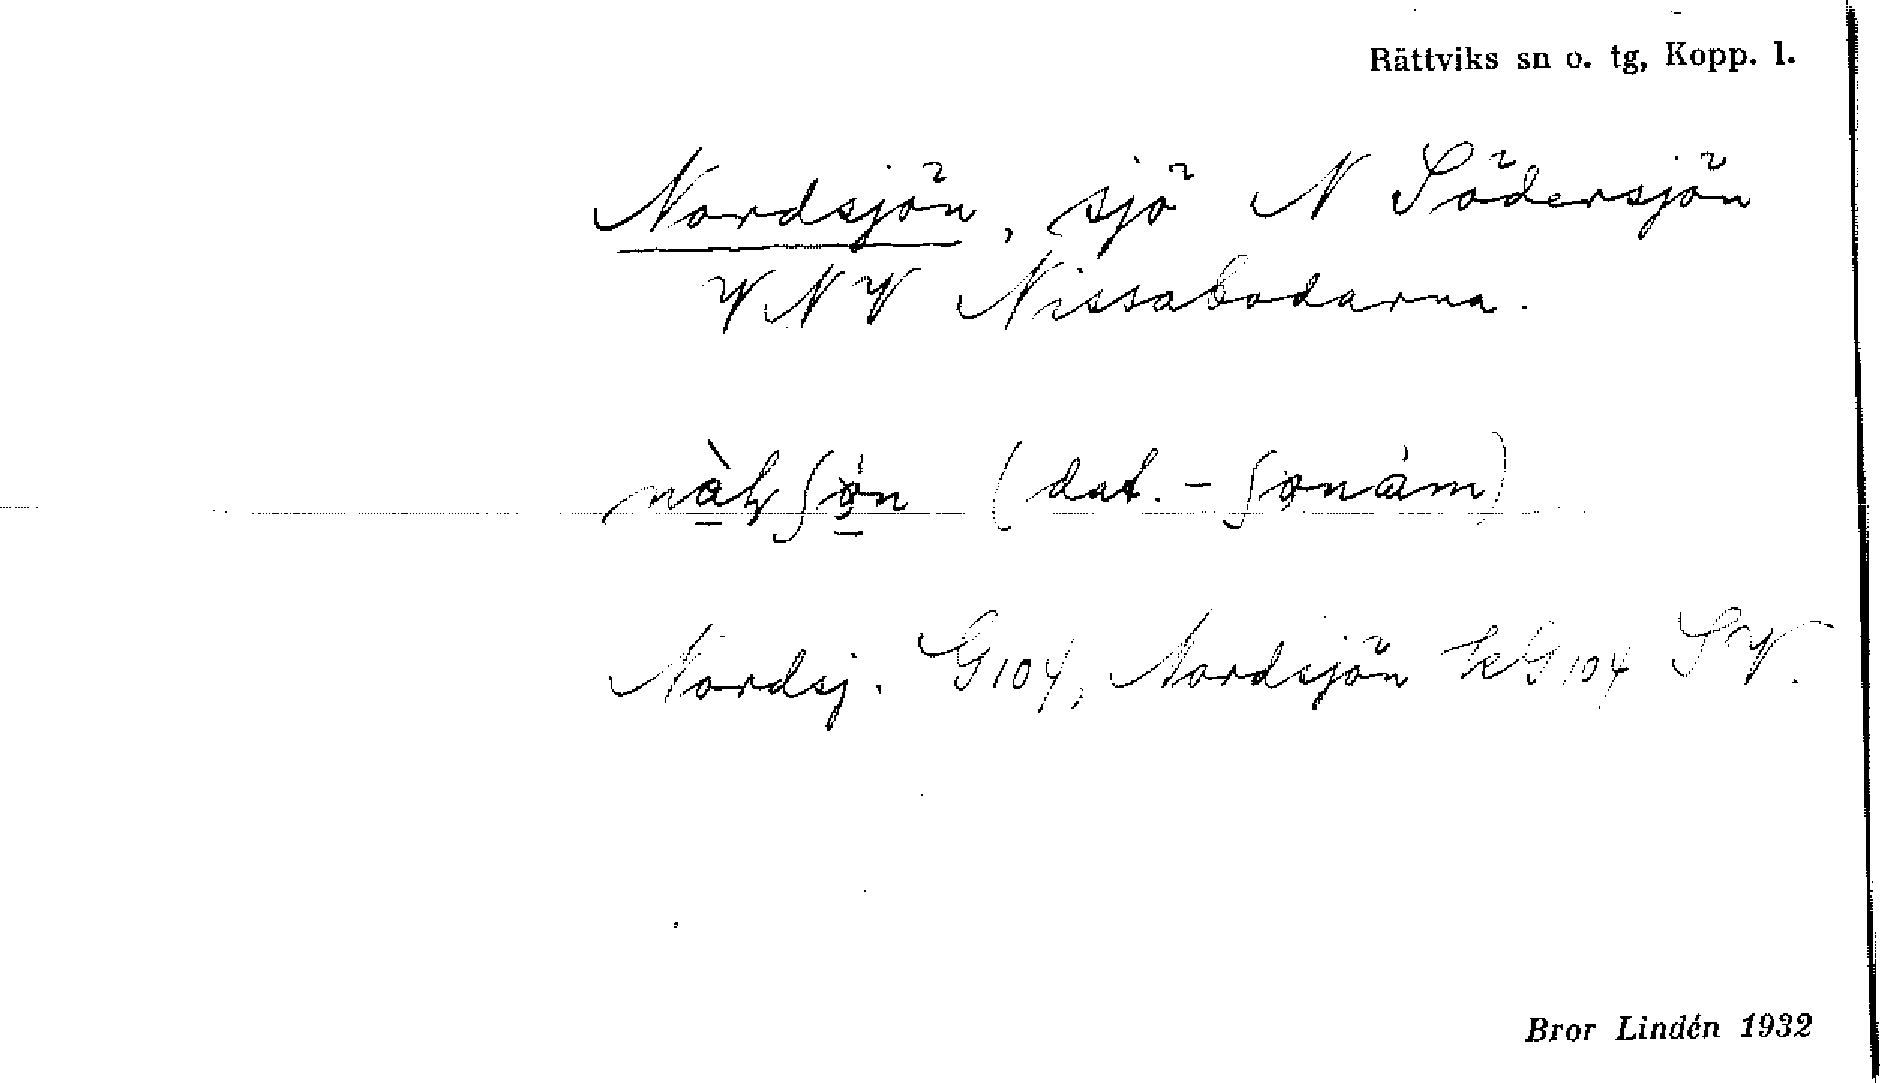 Rättviks sn o. tg, Kopp. l.
Nordsjön, sjö N Södersjön
VNV Nissabodarna.
(dat. -
Nordsj. G104, Nordsjön kG104 SV.
Bror Lindén 1932